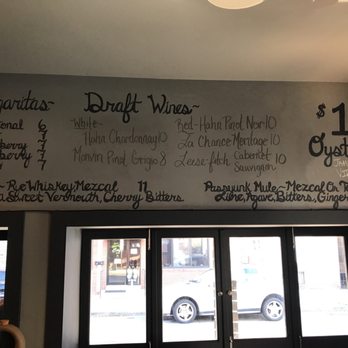 garitas~
onal 6
7
berry 7
7
Draft Wines~
White~
Hahn Chardonnay 10
Monvin Pinot Grigio 8
Red~Hahn Pinot Noir 10
La Chance Meritage 10
Leese-fitch Cabernet Sauvignon 10
$1
Oyst
~ Rye Whiskey Mezcal 11
Sweet Vermouth, Cherry Bitters
Passyunk Mule~Mezcal On T
Lime, Agave, Bitters, Ginger